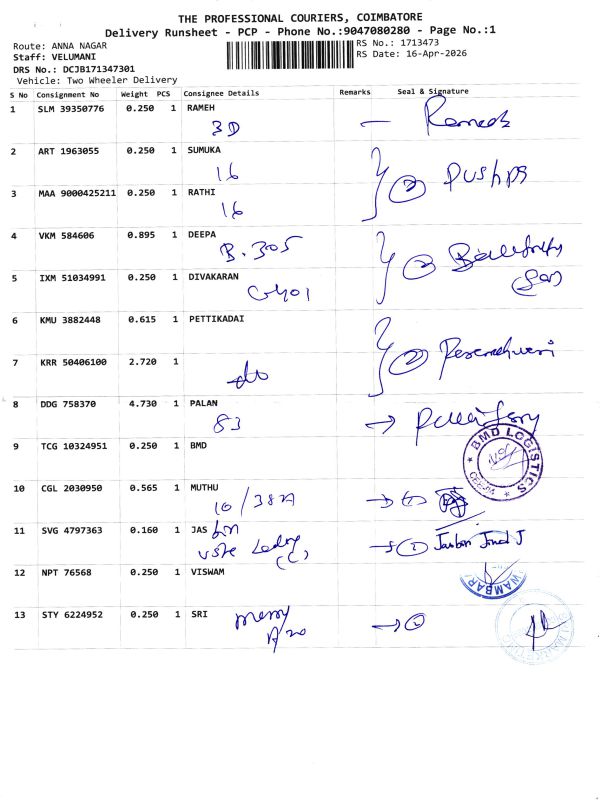 THE PROFESSIONAL COURIERS, COIMBATORE
Delivery Runsheet - PCP - Phone No.:9047080280 - Page No.:1
Route: ANNA NAGAR
RS No.: 1713473
Staff: VELUMANI
RS Date: 16-Apr-2026
DRS No.: DCJB171347301
Vehicle: Two Wheeler Delivery
S No Consignment No Weight PCS Consignee Details Remarks Seal & Signature
1 SLM 39350776 0.250 1 RAMEH
3D
2 ART 1963055 0.250 1 SUMUKA
16 2 Pushpa
3 MAA 9000425211 0.250 1 RATHI
16
4 VKM 584606 0.895 1 DEEPA
B.305 2
5 IXM 51034991 0.250 1 DIVAKARAN
G401
6 KMU 3882448 0.615 1 PETTIKADAI
2
7 KRR 50406100 2.720 1
do
8 DDG 758370 4.730 1 PALAN
83
9 TCG 10324951 0.250 1 BMD
BMD LOGISTICS
10 CGL 2030950 0.565 1 MUTHU
10/38A
11 SVG 4797363 0.160 1 JAS
12 NPT 76568 0.250 1 VISWAM
13 STY 6224952 0.250 1 SRI